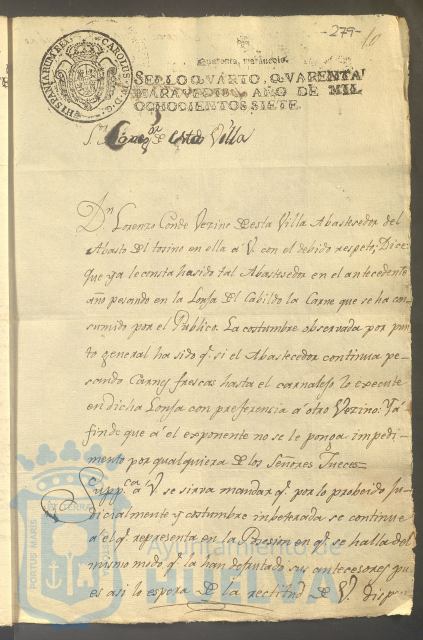 -279-
10
CAROLUS IV D. G. HISPANIARUM REX
Quarenta maravedis.
SELLO QVARTO, QVARENTA
MARAVEDIS, AÑO DE MIL
OCHOCIENTOS SIETE.
S.or Correg.or de esta Villa
D.n Lorenzo Conde Vezino de esta Villa Abastesedor del
Abasto del tosino en ella a V. con el debido respeto, Dice:
que ya le consta ha sido tal Abastesedor en el antecedente
año pesando en la Lonja del Cabildo la Carne que se ha con
sumido por el Publico. La costumbre observada por pun
to general ha sido q.e si el Abastecedor continua pe
sando Carnes frescas hasta el carnalejo lo execute
en dicha Lonja con preferencia a otro Vezino: Y a
fin de que a el exponente no se le ponga impedi
mento por qualquiera de los Señores Jueces
Supp.ca a V se sirva mandar q.e por lo probeido Ju
dicialmente y costumbre inbeterada se continue
a el q.e representa en la Posesion en q.e se halla del
mismo modo q.e la han disfrutado sus antecesores pu
es asi lo espera de la rectitud de V. dispo
Ayuntamiento de
Huelva
PORTUS MARIS ET TERRAE CUSTODIA